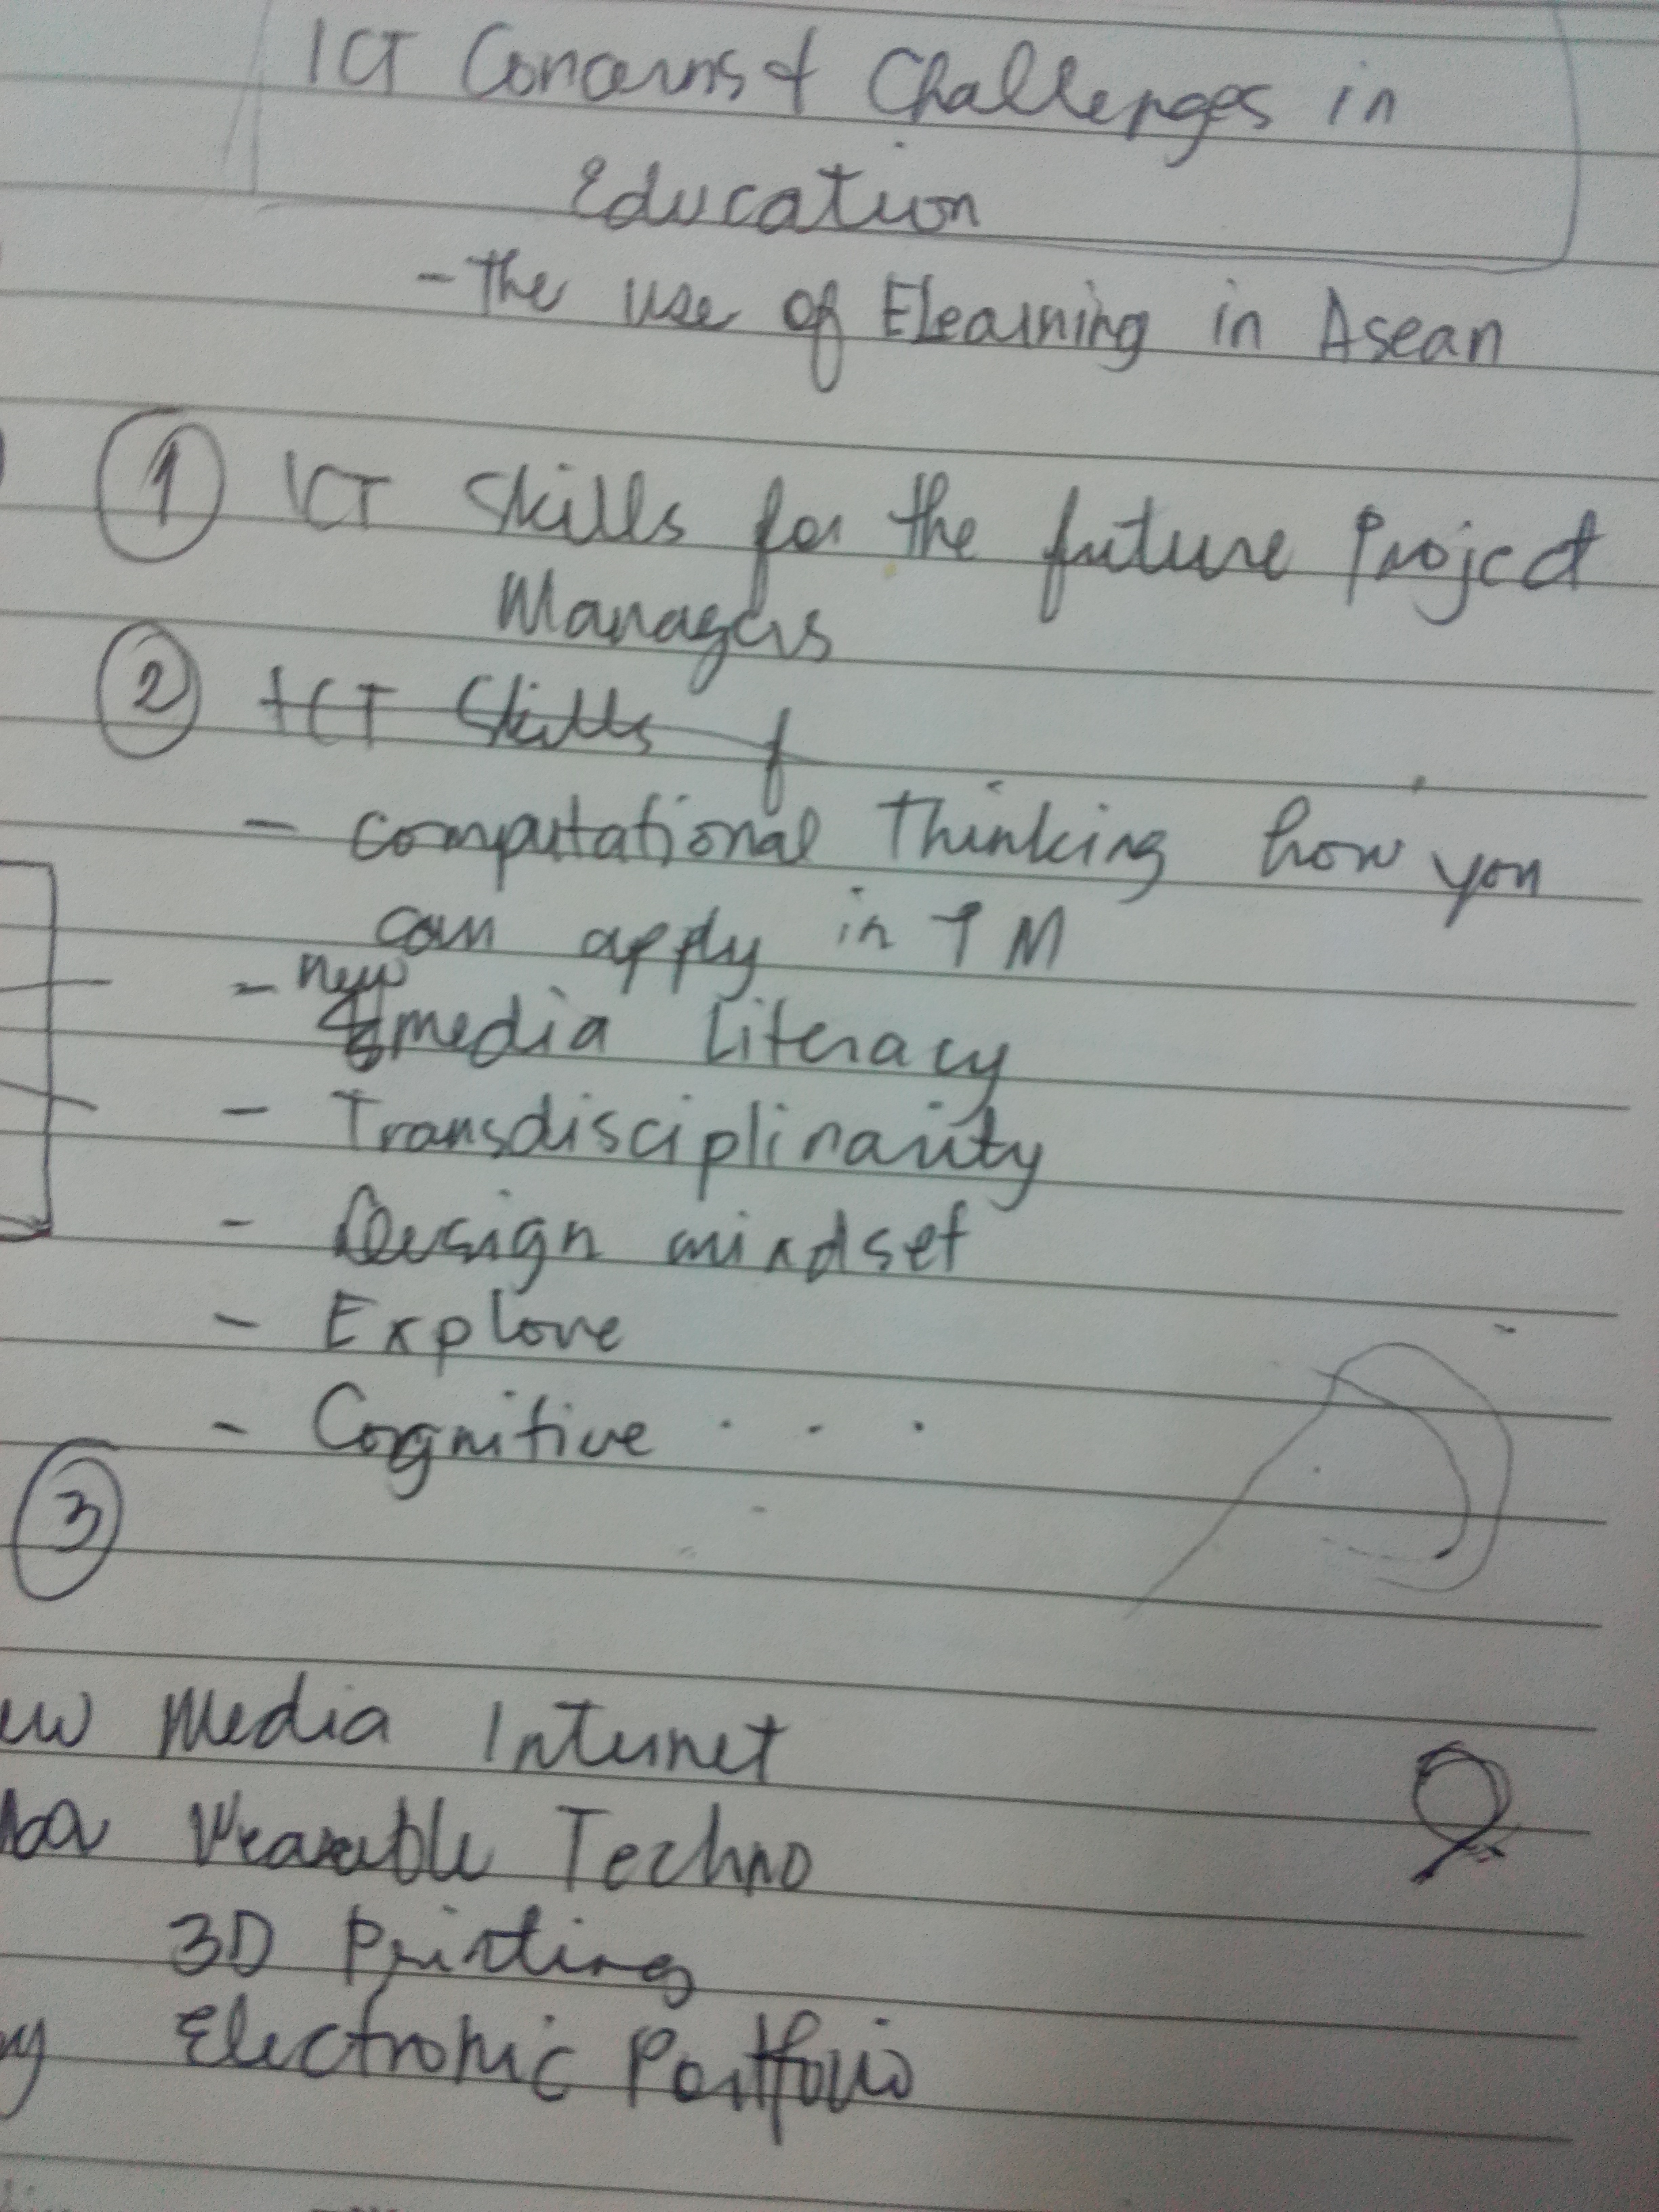 ICT Concerns & Challenges in
Education
- The use of Elearning in Asean
① ICT Skills for the future Project
Managers
② ICT Skills f
- Computational Thinking how you
can apply in PM
- new
media Literacy
- Transdisciplinarity
- Design mindset
- Explore
- Cognitive . . .
③
ew Media Internet
Wearable Techno
3D Printing
Electronic Portfolio